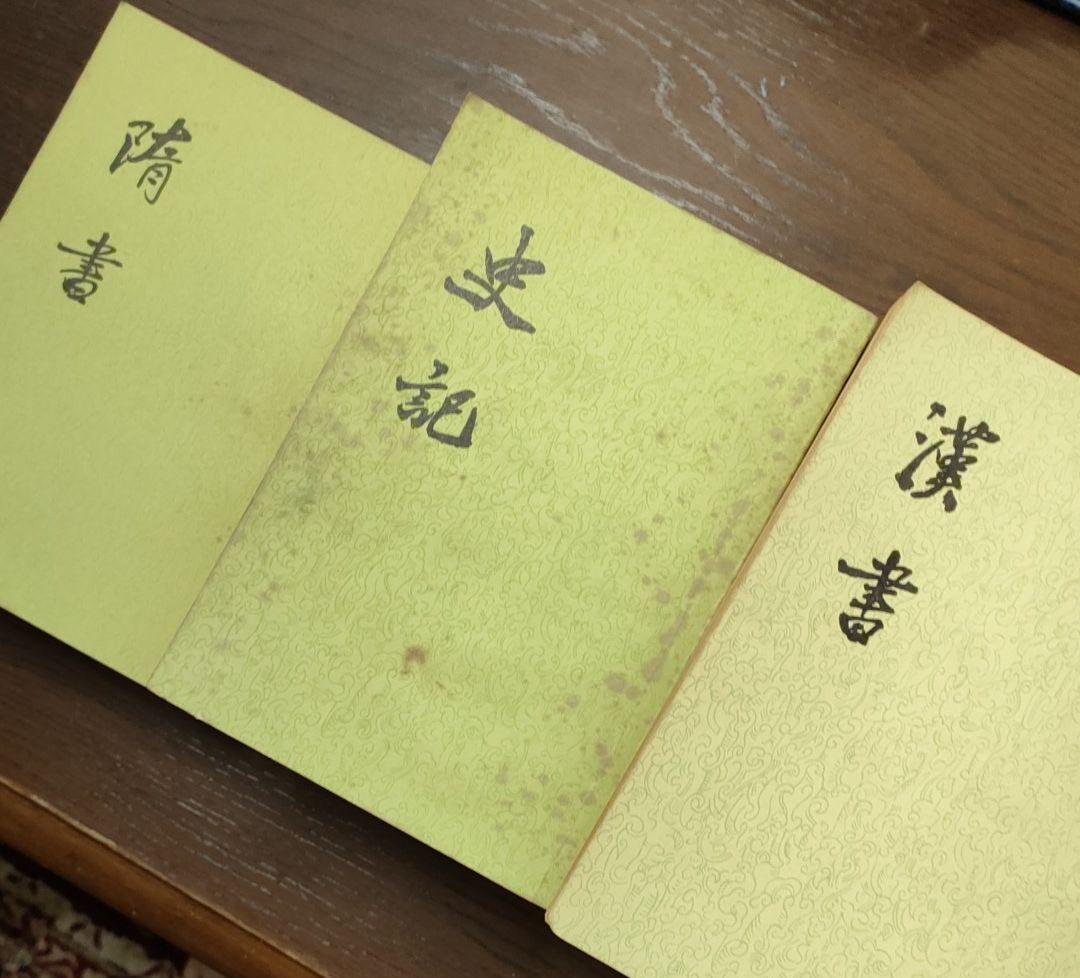 隋書
史記
漢書